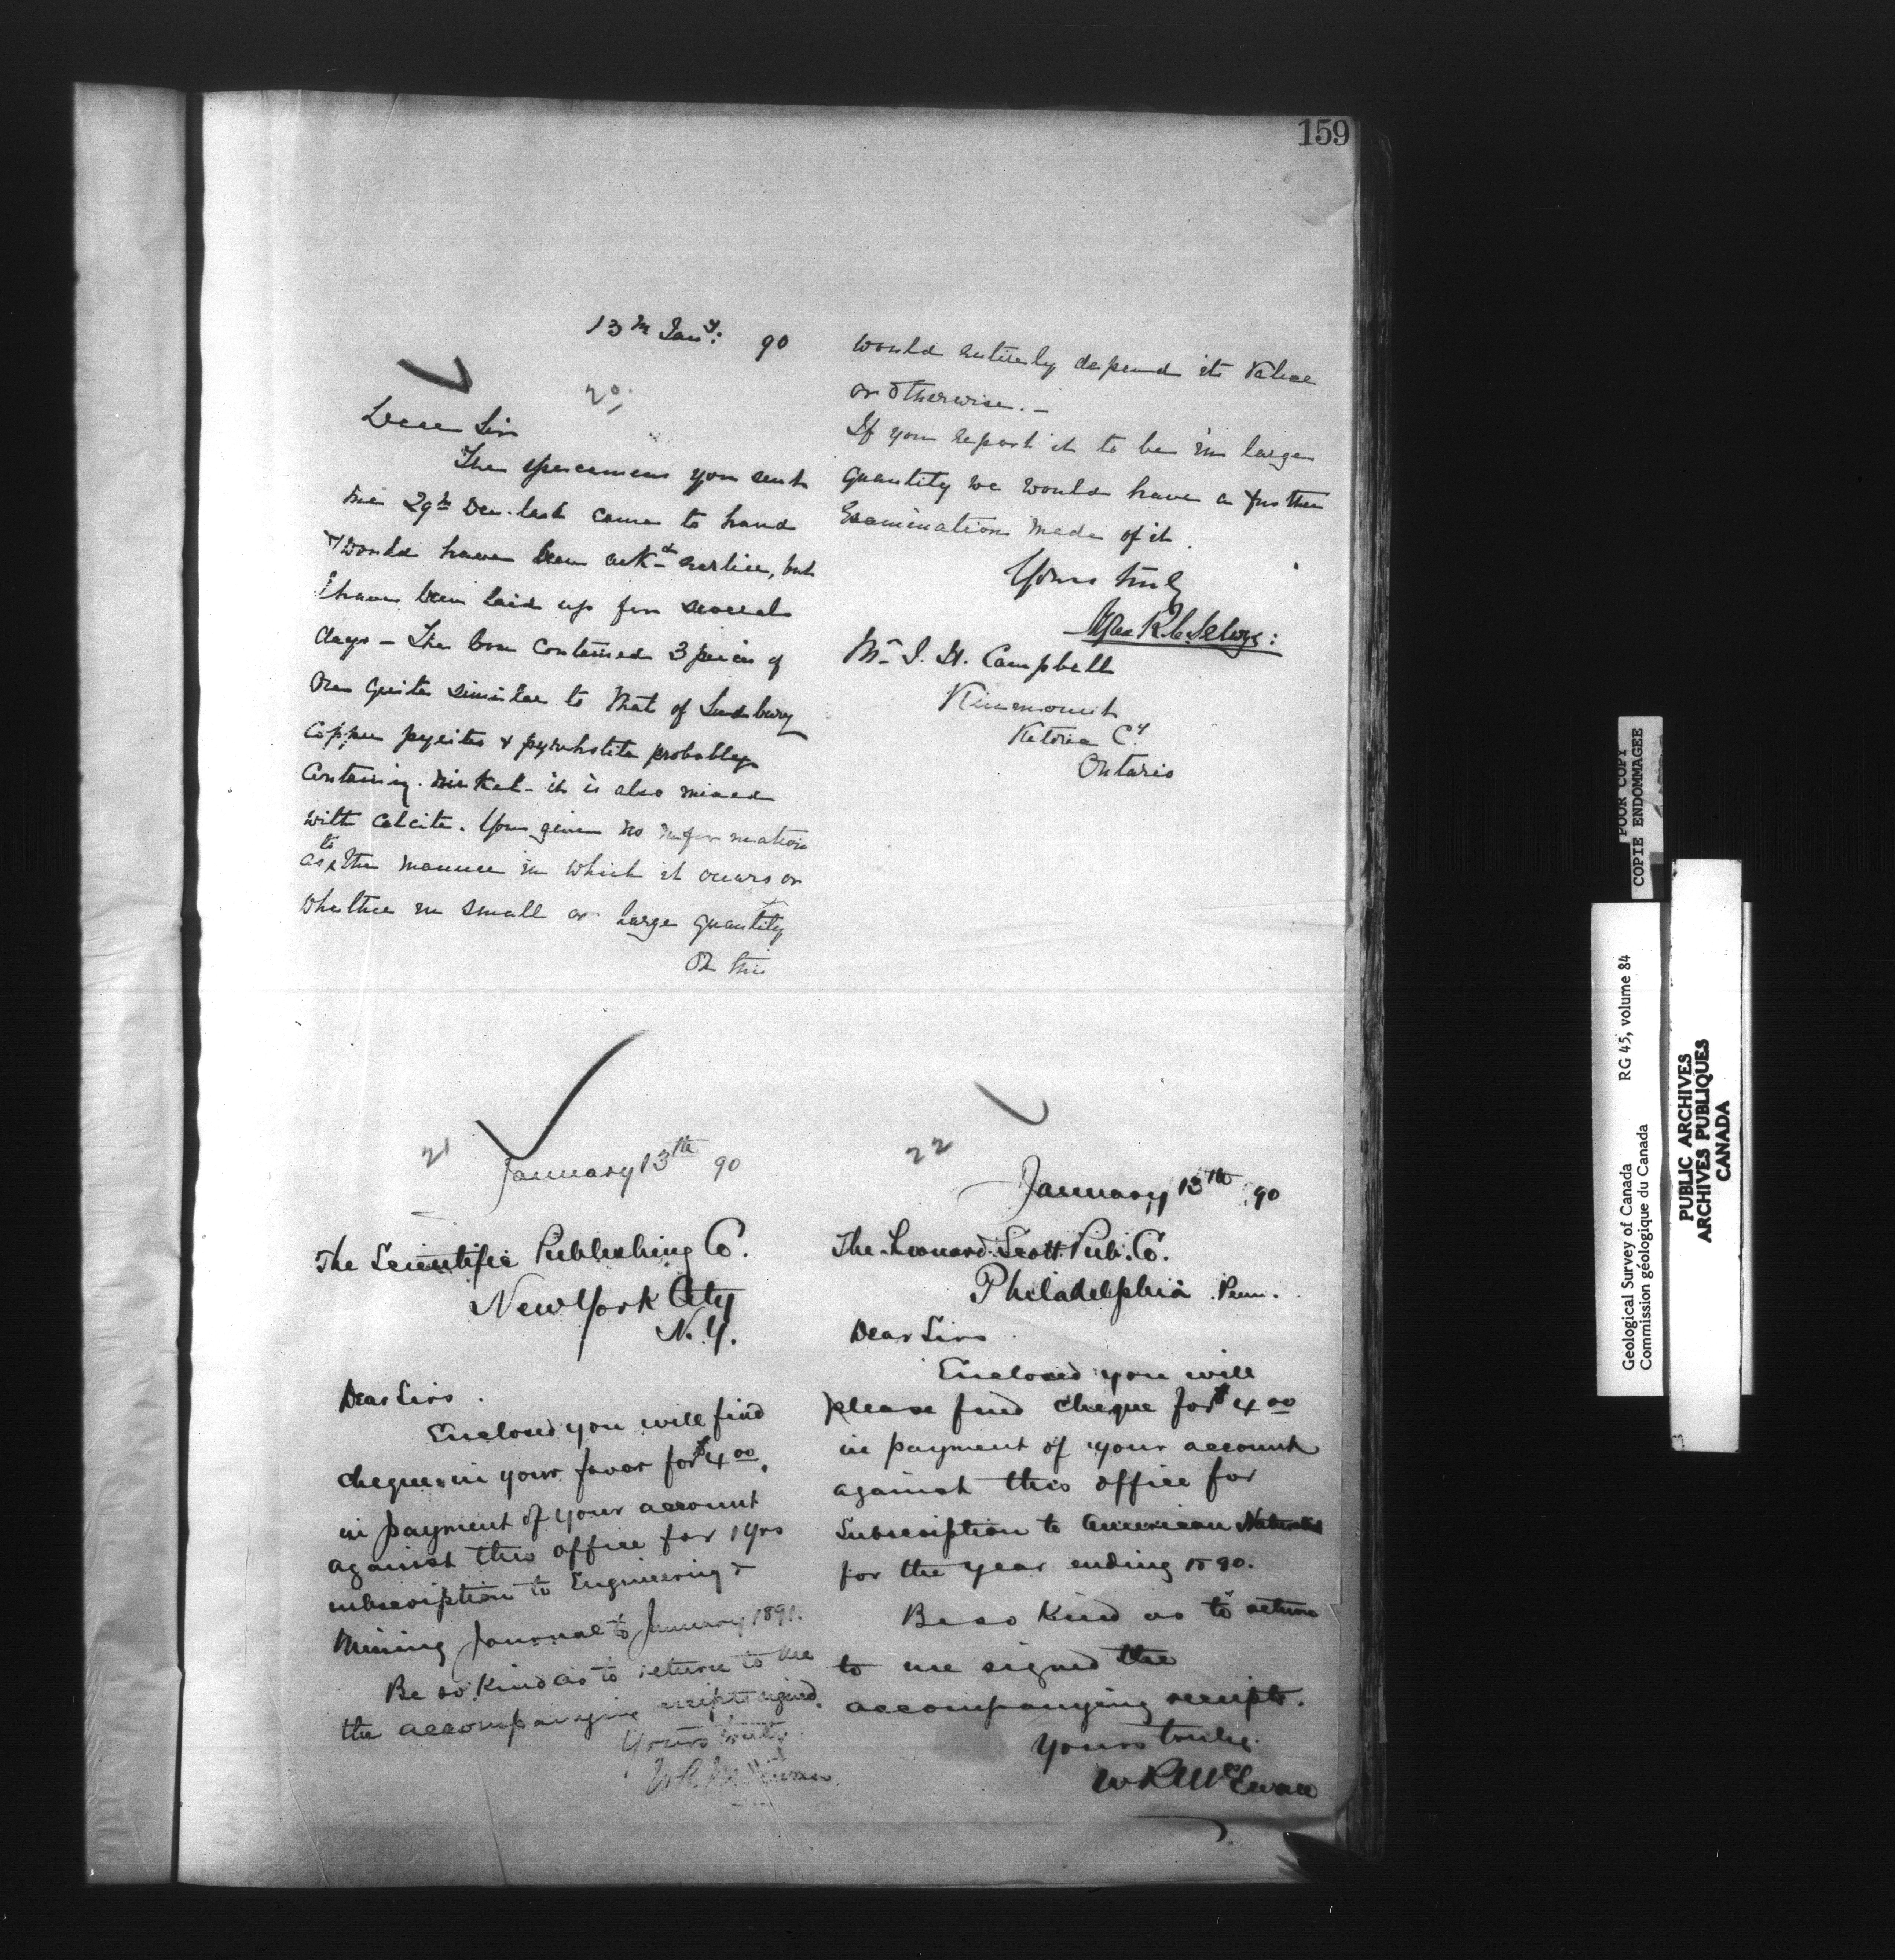 159
13th Jany: 90
20,
Dear Sir
The specimens you sent
me 29th Dec. last came to hand
& would have been ackd earlier, but
I have been laid up for several
days – The box contained 3 pieces of
ore quite similar to that of Sudbury
Copper pyrites & pyrrhotite probably
containing nickel – it is also mixed
with calcite. You give no information
as to the manner in which it occurs or
whether in small or large quantity
On this
would entirely depend its value
or otherwise. –
If you report it to be in large
quantity we would have a further
Examination made of it.
Yours truly
Alfred R. C. Selwyn:
Mr J. H. Campbell
Kinmount
Victoria Cy
Ontario
21
January 13th 90
The Scientific Publishing Co.
New York City
N.Y.
Dear Sirs.
Enclosed you will find
cheque in your favor for $4.00,
in payment of your account
against this office for 1 yrs
subscription to Engineering &
Mining Journal to January 1891.
Be so kind as to return to me
the accompanying receipts signed.
Yours truly
W R McEwan
22
January 13th 90
The Leonard Scott Pub. Co.
Philadelphia Penn.
Dear Sirs
Enclosed you will
please find cheque for $4.00
in payment of your account
against this office for
Subscription to American Naturalist
for the year ending 1890.
Be so kind as to return
to me signed the
accompanying receipts.
Yours truly.
W R McEwan
POOR COPY
COPIE ENDOMMAGEE
Geological Survey of Canada RG 45, volume 84
Commission géologique du Canada
PUBLIC ARCHIVES
ARCHIVES PUBLIQUES
CANADA